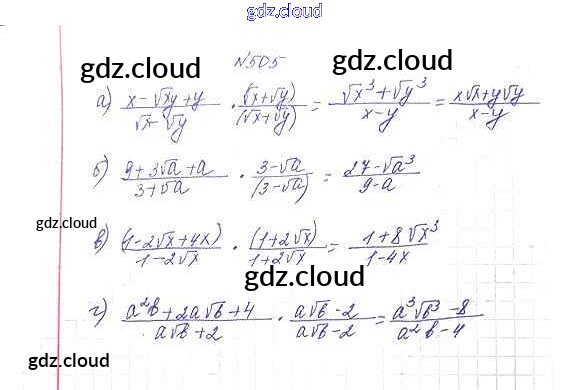 gdz.cloud
N505
gdz.cloud gdz.cloud
а) (x - √xy + y)/(√x - √y) · (√x + √y)/(√x + √y) = (√x³ + √y³)/(x - y) = (x√x + y√y)/(x - y)
б) (9 + 3√a + a)/(3 + √a) · (3 - √a)/(3 - √a) = (27 - √a³)/(9 - a)
gdz.cloud
gdz.cloud
в) (1 - 2√x + 4x)/(1 - 2√x) · (1 + 2√x)/(1 + 2√x) = (1 + 8√x³)/(1 - 4x)
gdz.cloud
г) (a²b + 2a√b + 4)/(a√b + 2) · (a√b - 2)/(a√b - 2) = (a³√b³ - 8)/(a²b - 4)
gdz.cloud
gdz.cloud